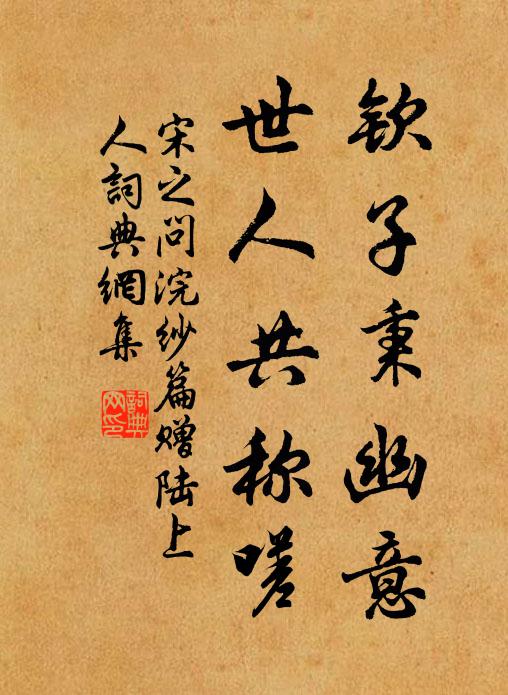 钦子秉幽意
世人共称嗟
宋之问浣纱篇赠陆上
人詞典網集
詞典
网印